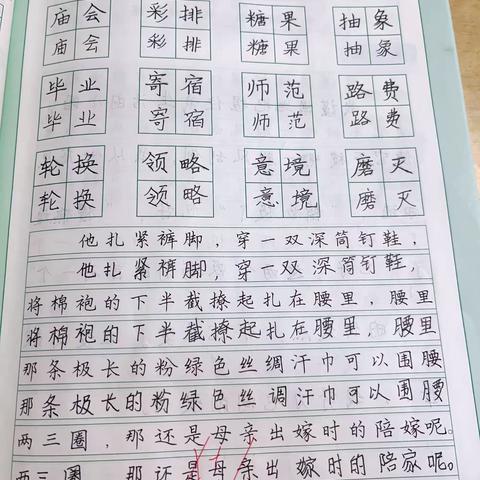 庙会 彩排 糖果 抽象
庙会 彩排 糖果 抽象
毕业 寄宿 师范 路费
毕业 寄宿 师范 路费
轮换 领略 意境 磨灭
轮换 领略 意境 磨灭
他扎紧裤脚，穿一双深筒钉鞋，
他扎紧裤脚，穿一双深筒钉鞋，
将棉袍的下半截撩起扎在腰里，腰里
将棉袍的下半截撩起扎在腰里，腰里
那条极长的粉绿色丝绸汗巾可以围腰
那条极长的粉绿色丝调汗巾可以围腰
两三圈，那还是母亲出嫁时的陪嫁呢。
两三圈，那还是母亲出嫁时的陪家呢。